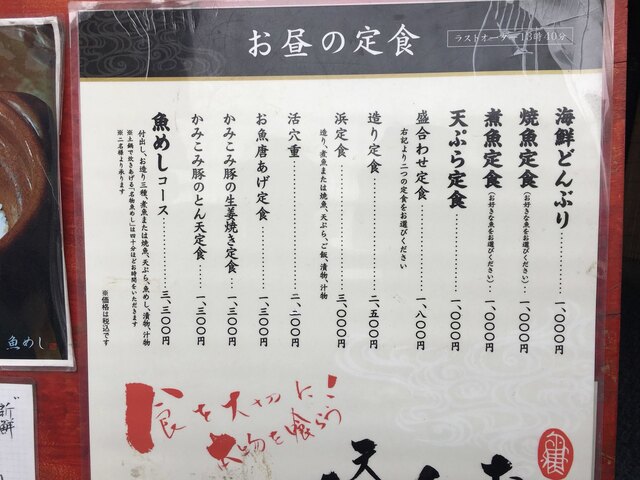 お昼の定食
ラストオーダー13時40分
海鮮どんぶり 一、〇〇〇円
焼魚定食(お好きな魚をお選びください) 一、〇〇〇円
煮魚定食(お好きな魚をお選びください) 一、〇〇〇円
天ぷら定食 一、〇〇〇円
盛合わせ定食 一、八〇〇円
右記より二つの定食をお選びください
造り定食 二、五〇〇円
浜定食 三、〇〇〇円
造り、煮魚または焼魚、天ぷら、ご飯、漬物、汁物
活穴重 二、二〇〇円
お魚唐あげ定食 一、三〇〇円
かみこみ豚の生姜焼き定食 一、三〇〇円
かみこみ豚のとん天定食 一、三〇〇円
魚めしコース 三、三〇〇円
付出し、お造り三種、煮魚または焼魚、天ぷら、魚めし、漬物、汁物
※土鍋で炊きあげる「名物魚めし」は四十分ほどお時間をいただきます
※二名様より承ります
※価格は税込です
食を大切に!
本物を喰らう
魚めし
新鮮